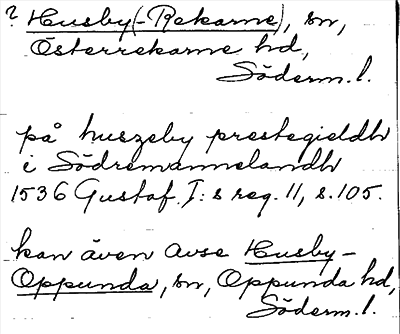 ? Husby(-Rekarne), sn,
Österrekarne hd,
Söderm.l.
på huszeby prestegieldh
i Södremannelandh
1536 Gustaf I:s reg. 11, s.105.
kan även avse Husby-
Oppunda, sn, Oppunda hd,
Söderm.l.